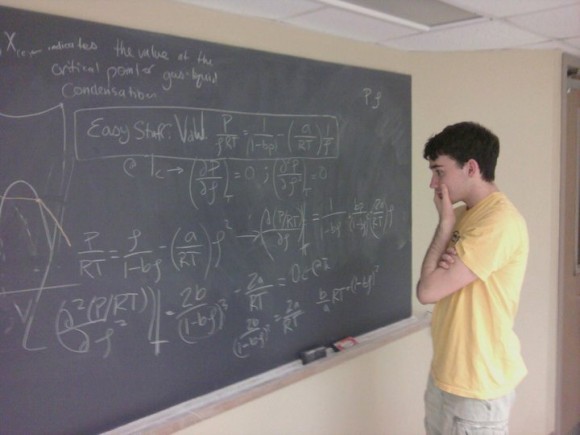 X indicates the value at the
critical point of gas-liquid
condensation
Pρ
Easy Stuff: VdW P/ρRT = 1/(1-bρ) - (a/RT)ρ
@ 1c → (∂P/∂ρ)_T = 0 ; (∂²P/∂ρ²)_T = 0
P/RT = ρ/(1-bρ) - (a/RT)ρ² → (∂(P/RT)/∂ρ)_T = 1/(1-bρ) +
(∂²(P/RT)/∂ρ²)|_T = 2b/(1-bρ)³ - 2a/RT = 0
2b/(1-bρ)³ = 2a/RT
b/a RT = (1-bρ)³
V